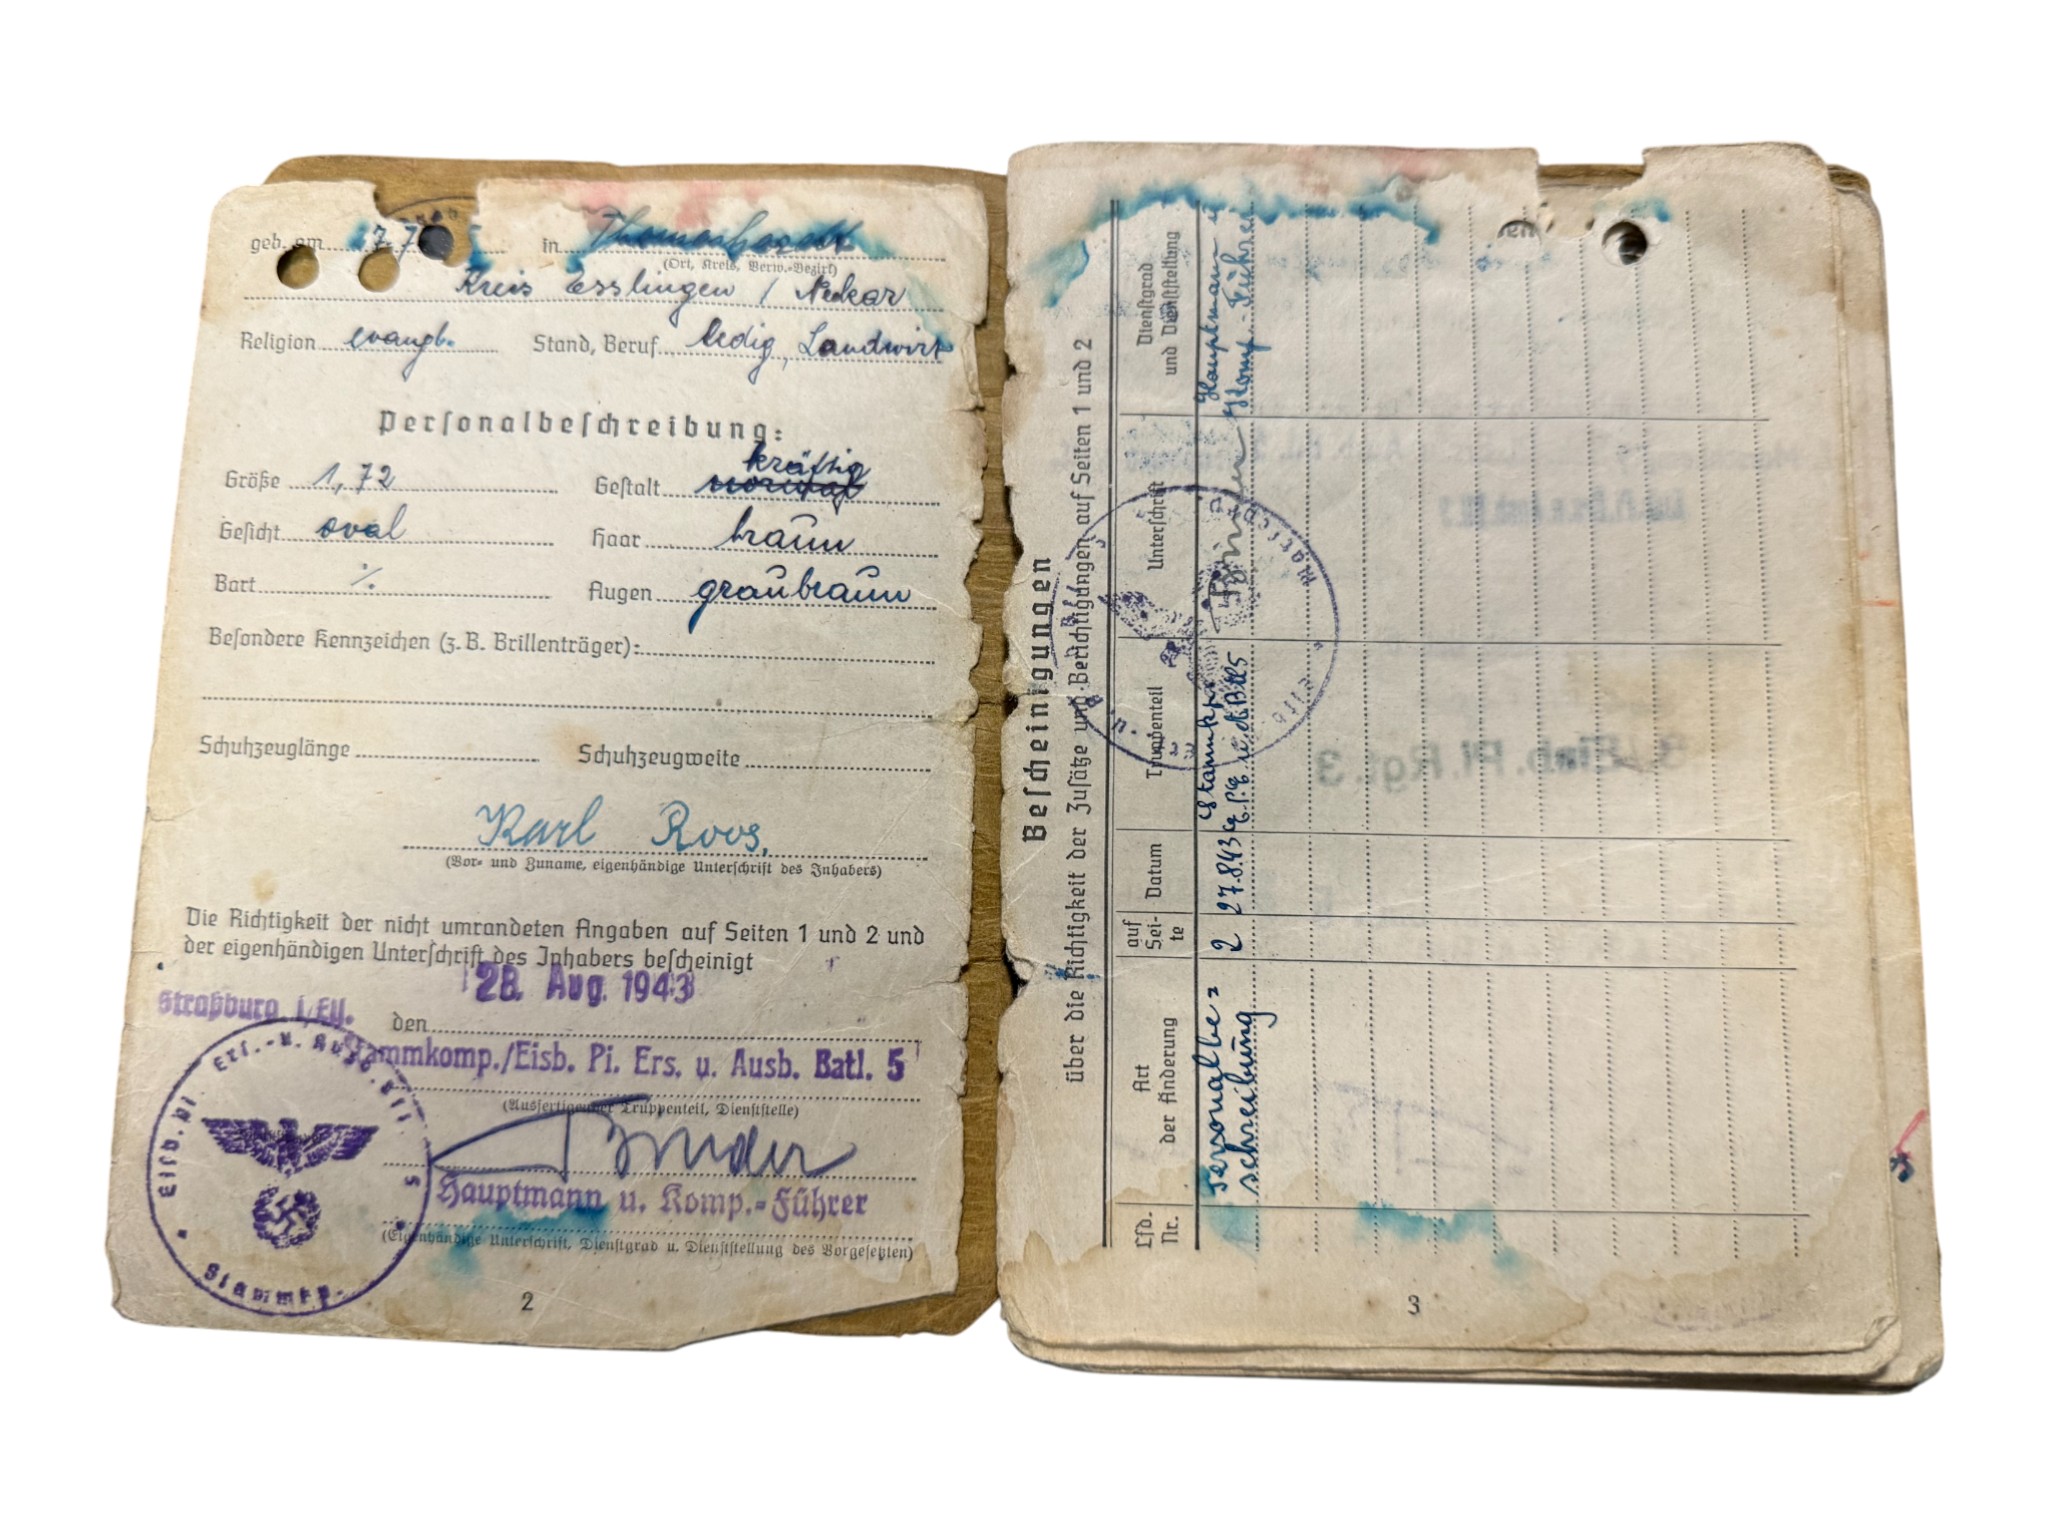 geb. am 17.7 in Thomashardt
(Ort, Kreis, Verw.-Bezirk)
Kreis Esslingen / Neckar
Religion evangl. Stand, Beruf ledig, Landwirt
Personalbeschreibung:
kräftig
Größe 1,72 Gestalt normal
Gesicht oval Haar braun
Bart ./. Augen graubraun
Besondere Kennzeichen (z. B. Brillenträger):
Schuhzeuglänge Schuhzeugweite
Karl Roos.
(Vor- und Zuname, eigenhändige Unterschrift des Inhabers)
Die Richtigkeit der nicht umrandeten Angaben auf Seiten 1 und 2 und
der eigenhändigen Unterschrift des Inhabers bescheinigt
28. Aug. 1943
Straßburg i./Els. den
Stammkomp./Eisb. Pi. Ers. u. Ausb. Batl. 5
(Ausfertigender Truppenteil, Dienststelle)
Hauptmann u. Komp.-Führer
(Eigenhändige Unterschrift, Dienstgrad u. Dienststellung des Vorgesetzten)
Eisb. Pi. Ers.- u. Ausb. Btl. 5
Stammkp.
2
Bescheinigungen
über die Richtigkeit der Zusätze und Berichtigungen auf Seiten 1 und 2
Lfd. Nr.
Art der Änderung
auf Sei-te
Datum
Truppenteil
Unterschrift
Dienstgrad und Dienststellung
Personalbe=
schreibung
2
27.8.43
Stammkp.
Hauptmann u
Komp.-Führer
3
8./Eisb. Pi. Rgt. 3